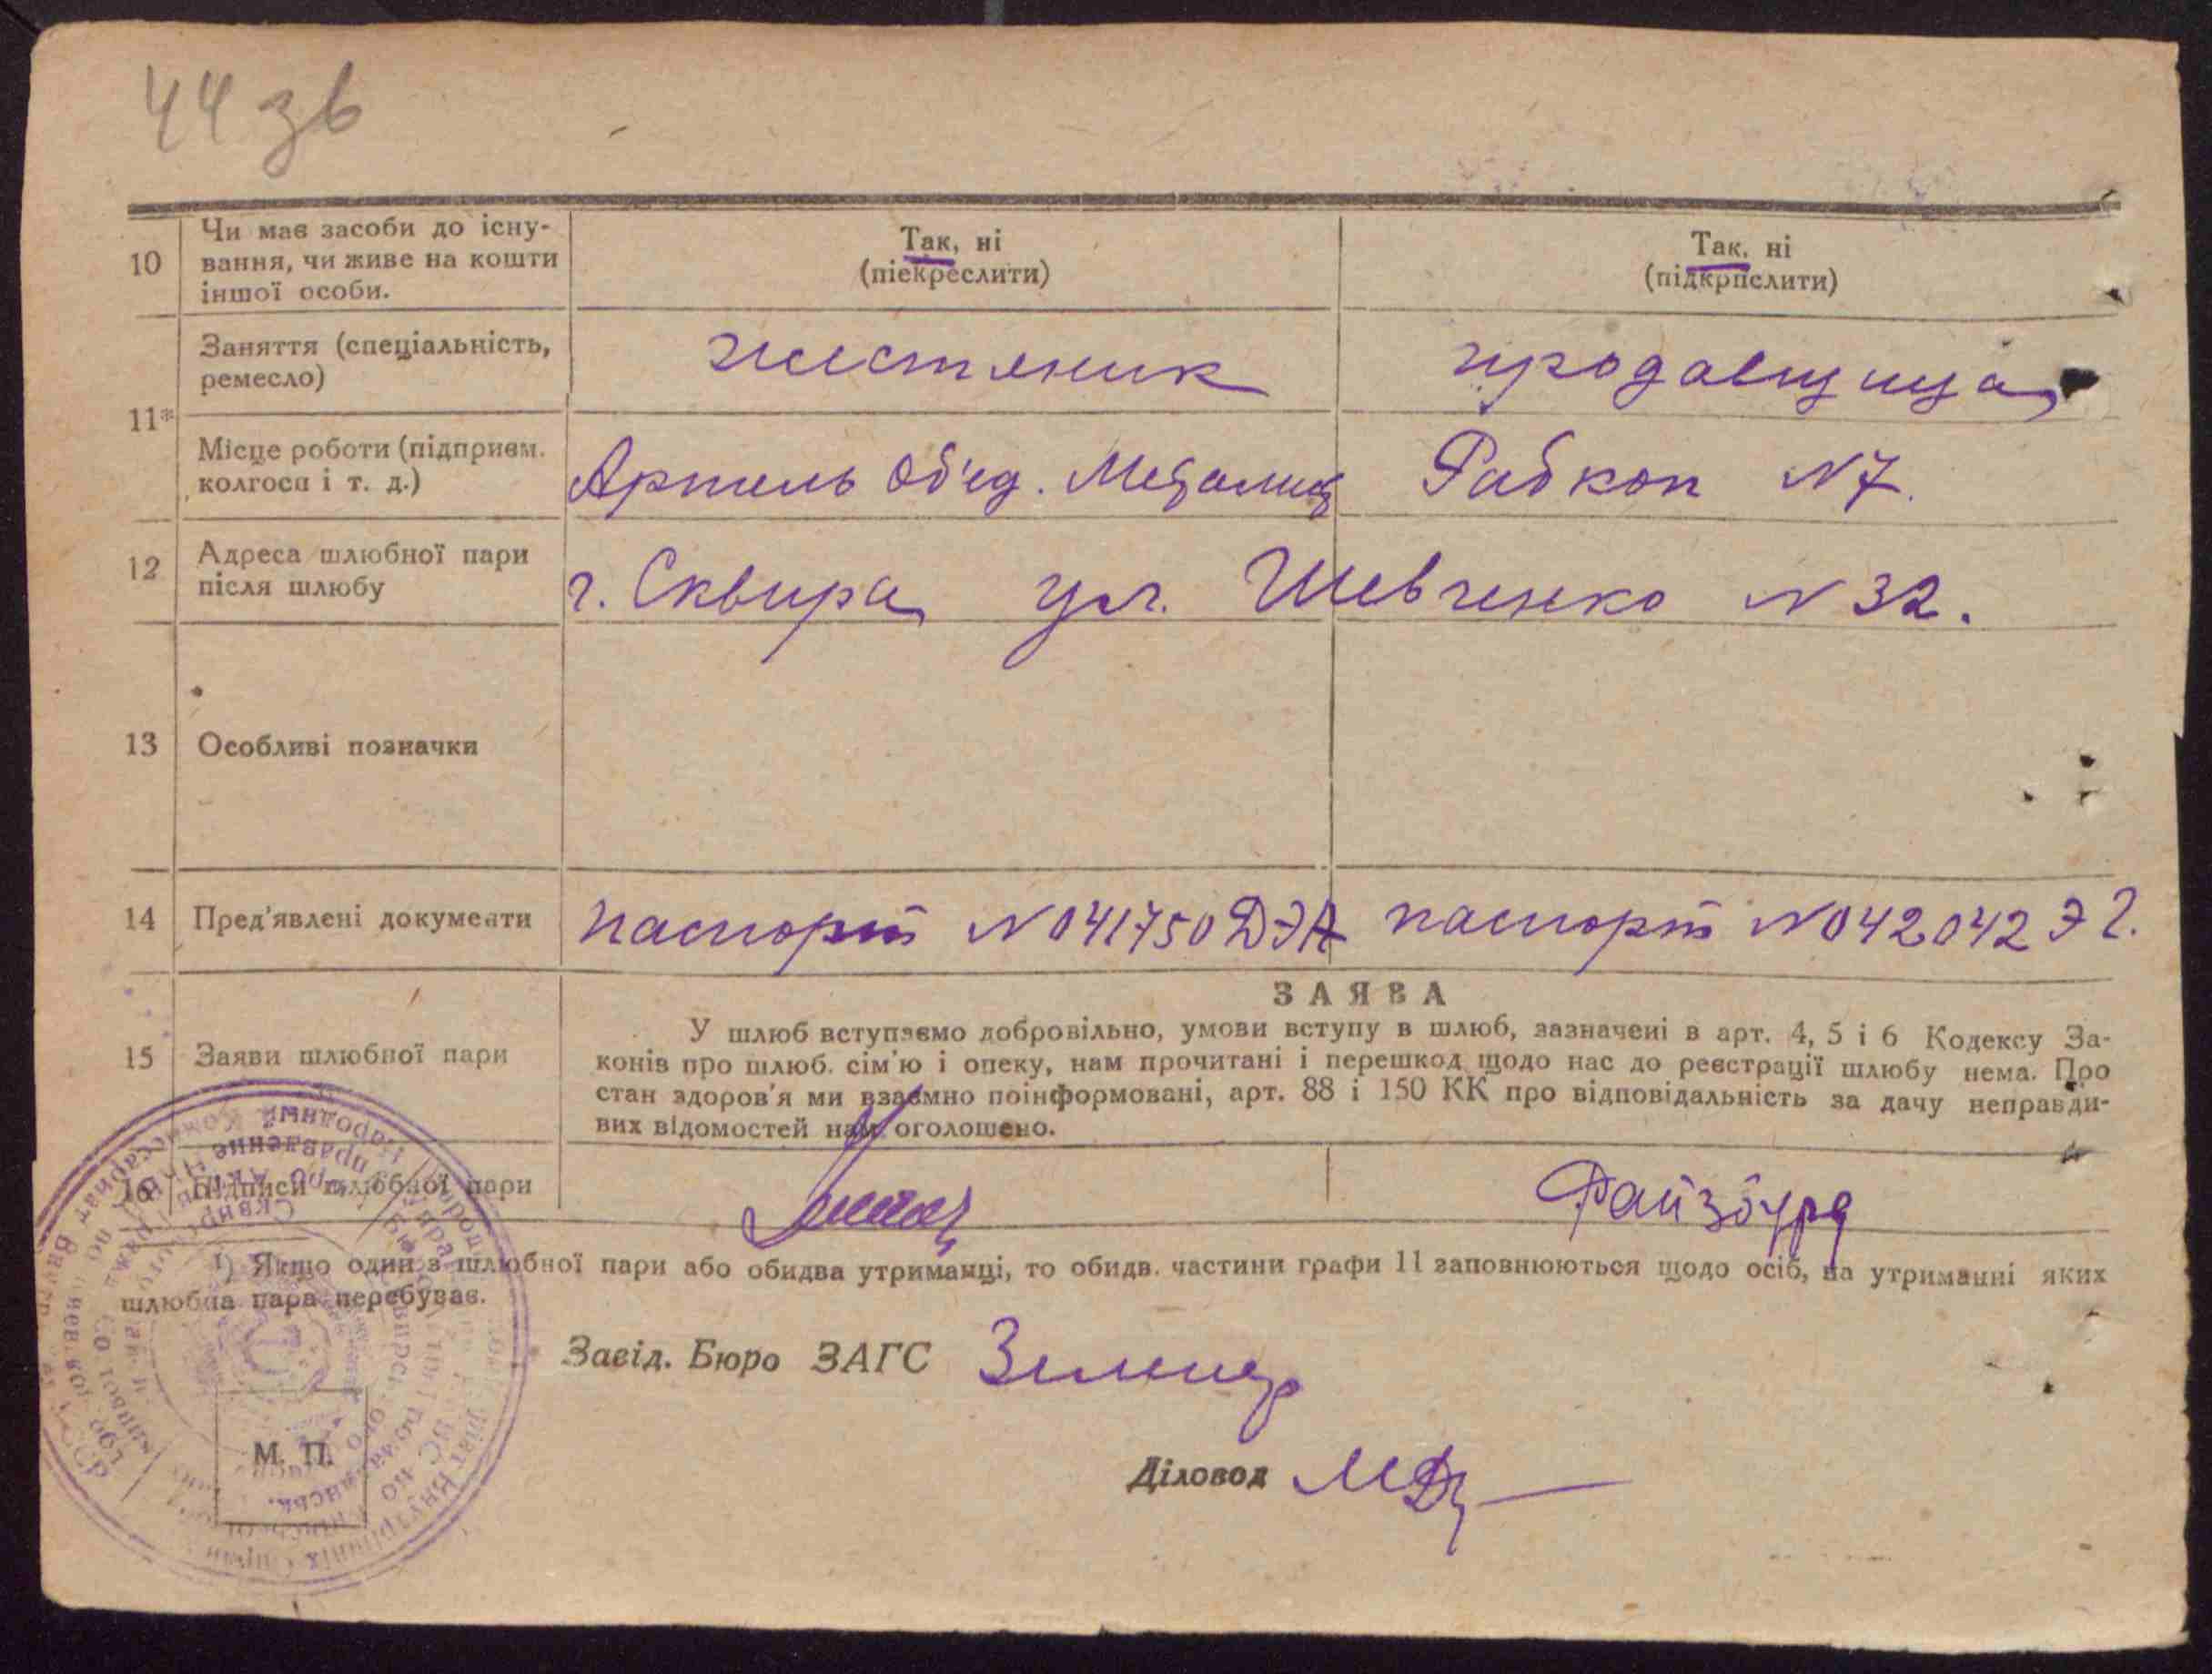 44 зв
10 Чи має засоби до існу-
вання, чи живе на кошти
іншої особи.
Так, ні
(піекреслити)
Так, ні
(підкрпслити)
11*
Заняття (спеціальність,
ремесло)
жестяник
продавщица
Місце роботи (підприєм.
колгосп і т. д.)
Артель Об'ед. Металист
Рабкоп N7.
12 Адреса шлюбної пари
після шлюбу
г. Сквира ул. Шевченко N 32.
13 Особливі позначки
14 Пред'явлені документи
паспорт N 041750 ДЭА
паспорт N 042042 Э Г.
15 Заяви шлюбної пари
ЗАЯВА
У шлюб вступаємо добровільно, умови вступу в шлюб, зазначені в арт. 4, 5 і 6 Кодексу За-
конів про шлюб. сім'ю і опеку, нам прочитані і перешкод щодо нас до реєстрації шлюбу нема. Про
стан здоров'я ми взаємно поінформовані, арт. 88 і 150 КК про відповідальність за дачу неправди-
вих відомостей нам оголошено.
16 Підписи шлюбної пари
Файзбурд
¹) Якщо один з шлюбної пари або обидва утриманці, то обидв. частини графи 11 заповнюються щодо осіб, на утриманні яких
шлюбна пара перебуває.
Завід. Бюро ЗАГС
Діловод
М. П.